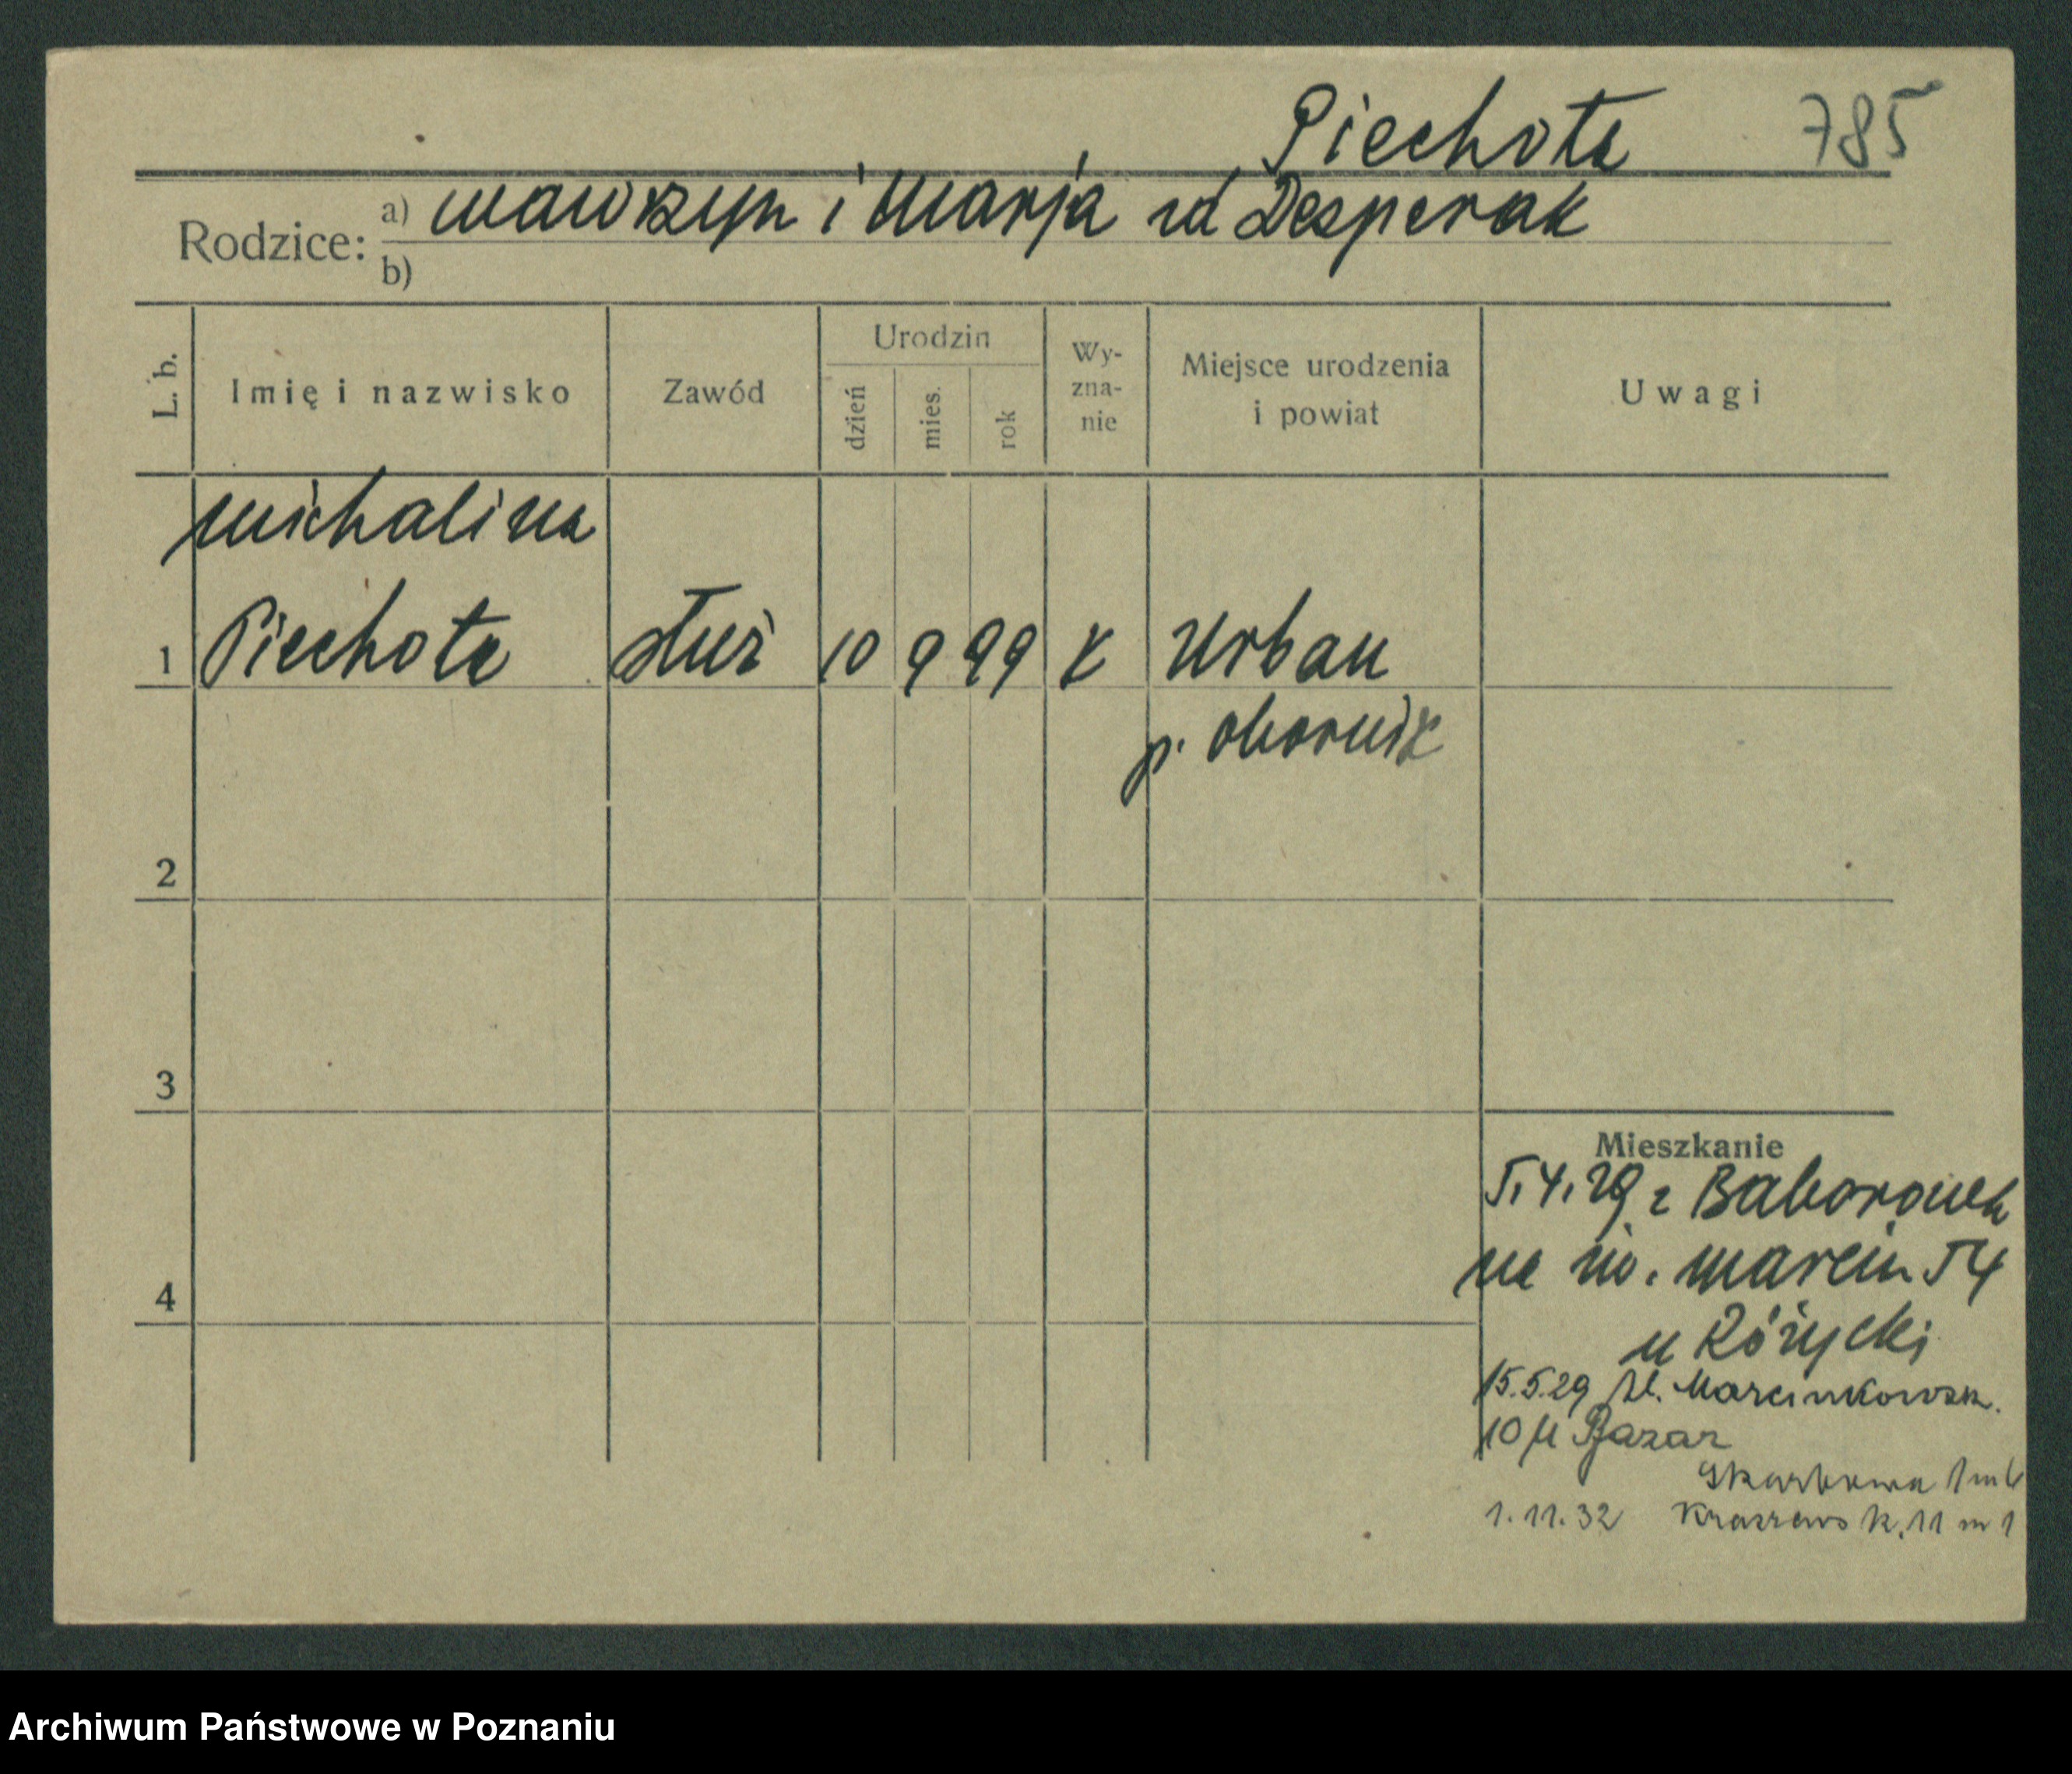 Piechota 785
Rodzice: a) Wawrzyn i Marja zd Desperak
b)
L. b. Imię i nazwisko Zawód Urodzin dzień mies. rok Wy-zna-nie Miejsce urodzenia i powiat Uwagi
Michalina
1 Piechota służ 10 9 99 k Urban
p. Obornik
2
3
Mieszkanie
5.4.29 z Baborówk
4 na św. Marcin 54
u Różycki
15.5.29 Al. Marcinkowsk.
10 u Bazar
Skarbowa 1 m 6
1.11.32 Kraszewsk. 11 m 1
Archiwum Państwowe w Poznaniu